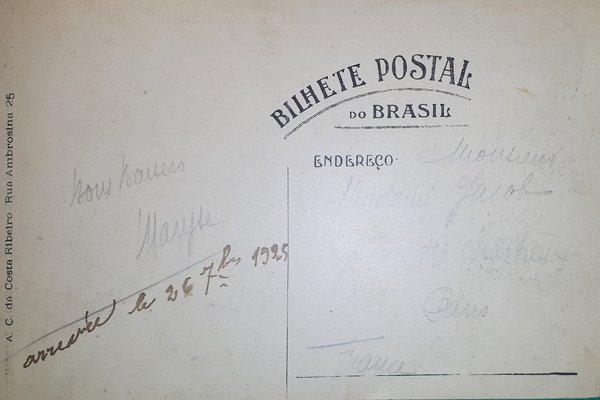 BILHETE POSTAL
DO BRASIL
ENDEREÇO
A. C. da Costa Ribeiro Rua Ambrosina 25
bons baisers
Maryse
arrivée le 26 7bre 1925
Monsieur
Madame Jacob
Chartreux
Paris
France